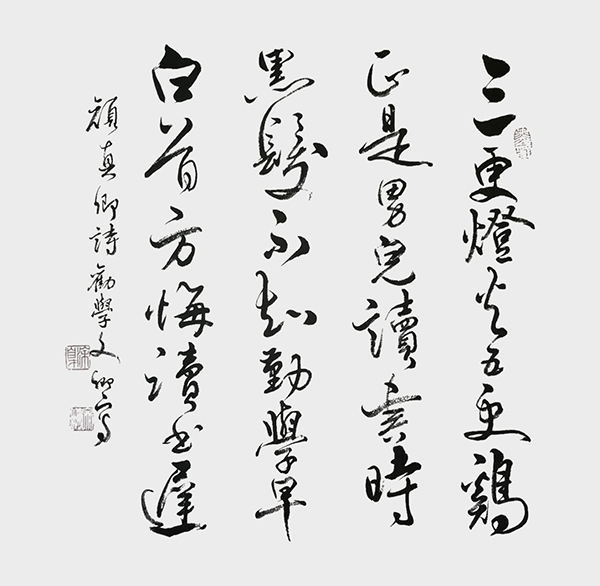 三更燈火五更鷄
正是男兒讀書時
黑髮不知勤學早
白首方悔讀書遲
顏真卿詩勸學文卿寫